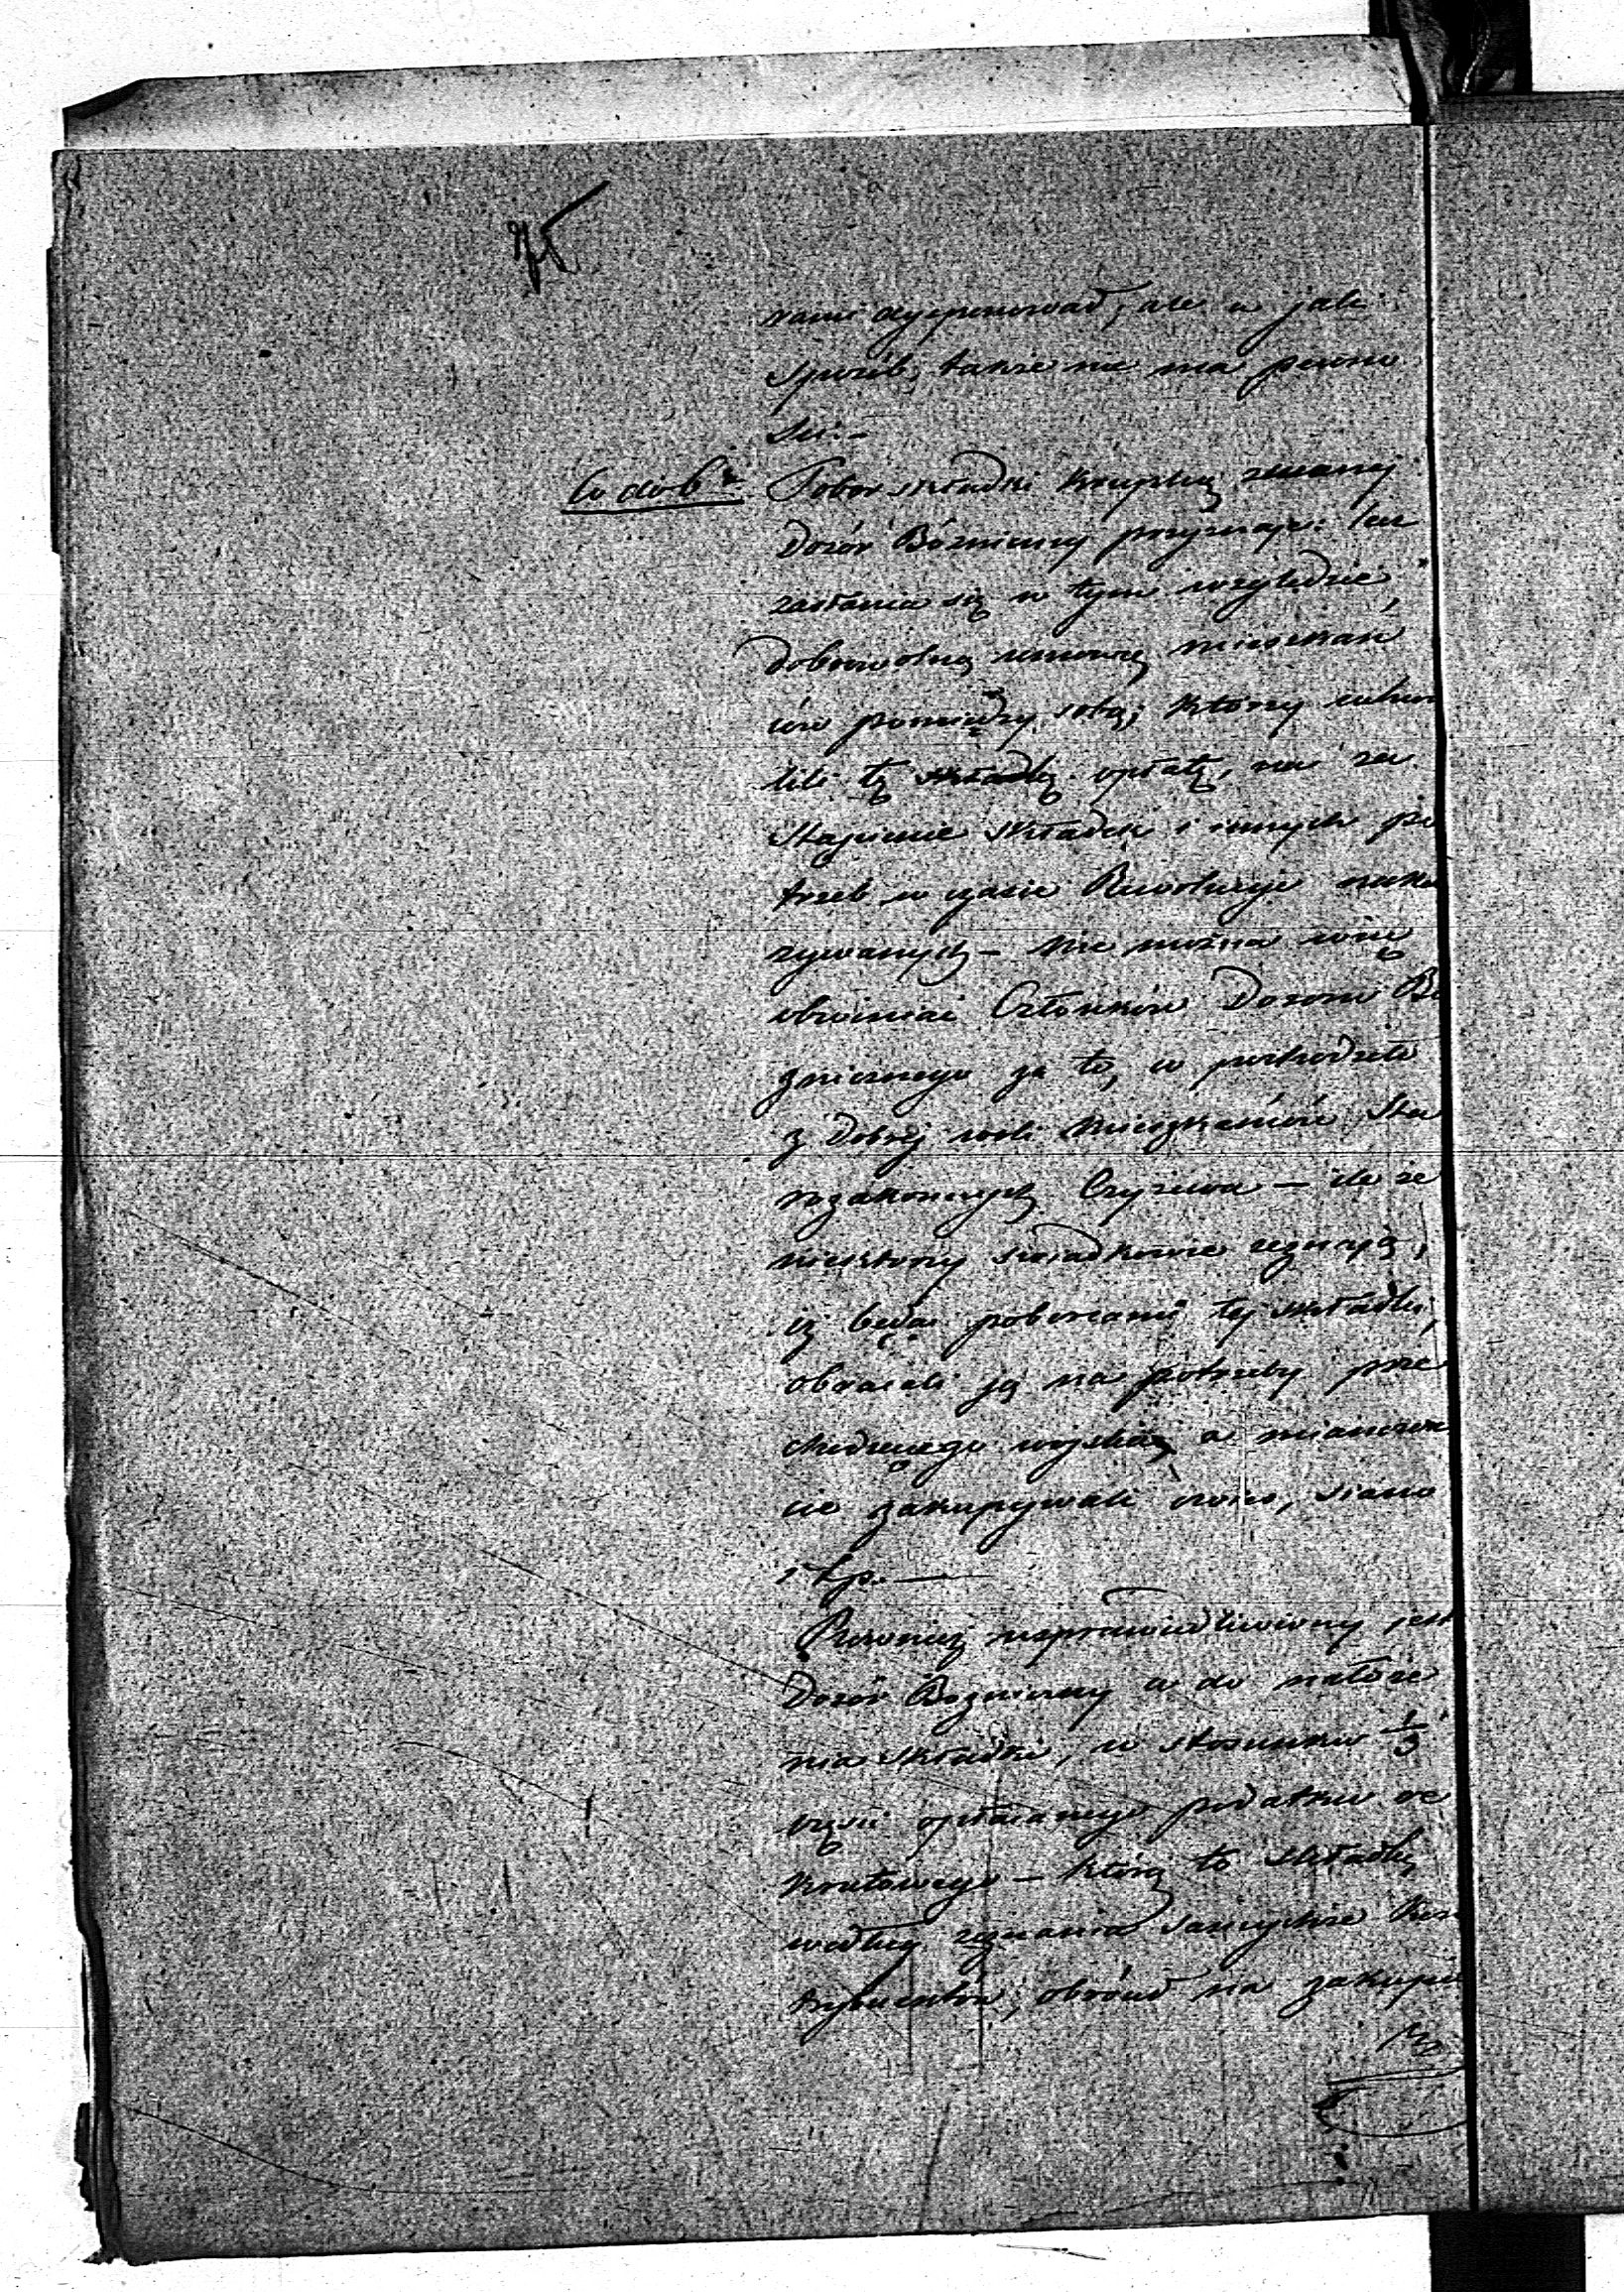 rami dysponował, ale w jaki
sposób, także nie ma pewno
ści.-
Co do 6º Pobor składki Krupką zwanej
Dozór Bóżniczny przyznaje: lecz
zasłania się w tym względzie,
dobrowolną umową mieszkań
ców pomiędzy sobą; którzy uchwa
lili tę składkę opłatę, na za
stąpienie składek i innych po
trzeb w czasie Rewolucyi naka
zywanych - Nie można więc
obwiniać Członków Dozoru Bó
żnicznego za to, co pochodziło
z dobrej woli Mieszkańców Sta
rozakonnych Czyżewa - ile że
niektórzy świadkowie zeznają,
iż będąc poborcami tej składki,
obracali ją na potrzeby prze
chodzącego wojska, a mianowi
cie zakupywali owies, siano
i t.p. -
Rownież usprawiedliwiony jest
Dozór Bożniczny co do nałoże
nia składki, w stosunku 1/3
części opłacanego podatku re
krutowego - którą to składkę
według zeznania samychże Kon
trybuentów, obrócił na zakupie